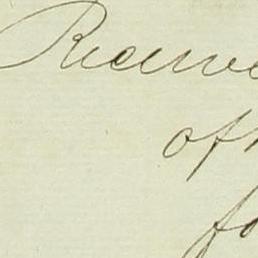 Receive
of
fo